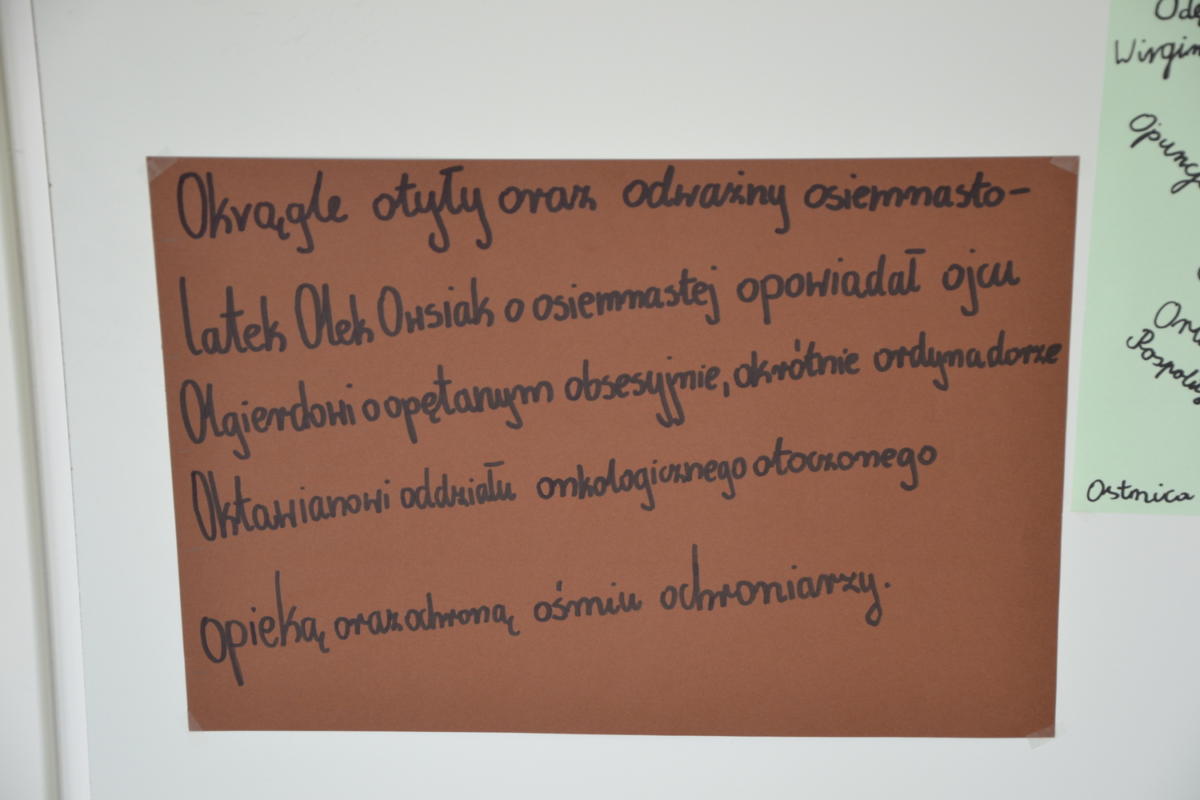 Okrągle otyły oraz odważny osiemnasto-
latek Olek Owsiak o osiemnastej opowiadał ojcu
Olgierdowi o opętanym obsesyjnie, okrótnie ordynadorze
Oktawianowi oddziału onkologicznego otoczonego
opieką oraz ochroną ośmiu ochroniarzy.
Ostnica